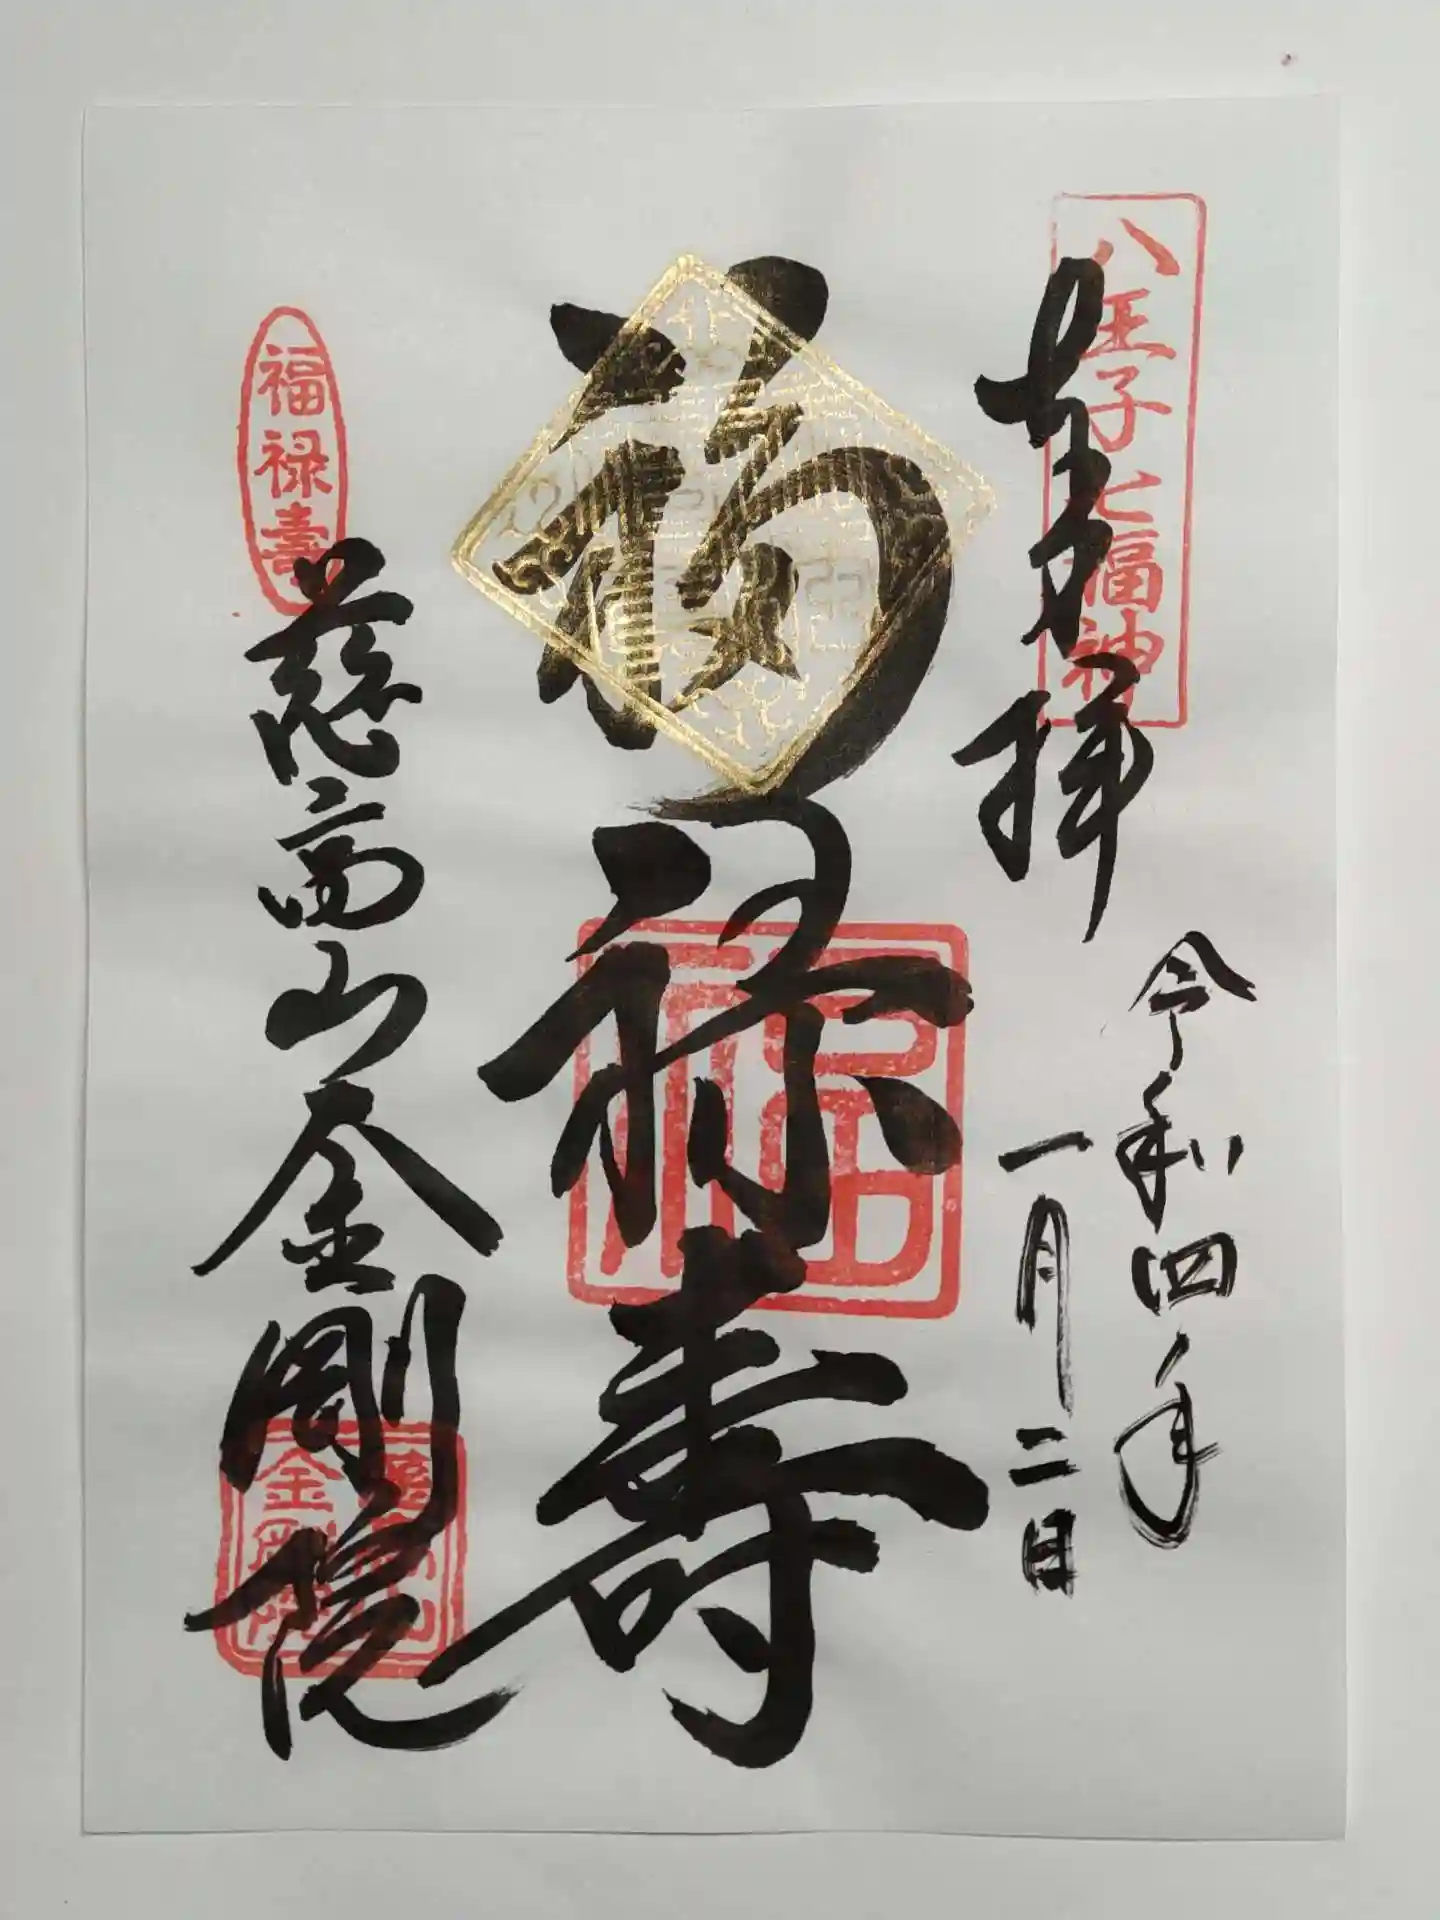 八王子七福神
奉拝
令和四年
一月二日
福禄寿
福
福禄壽
慈高山金剛院
慈高山
金剛院